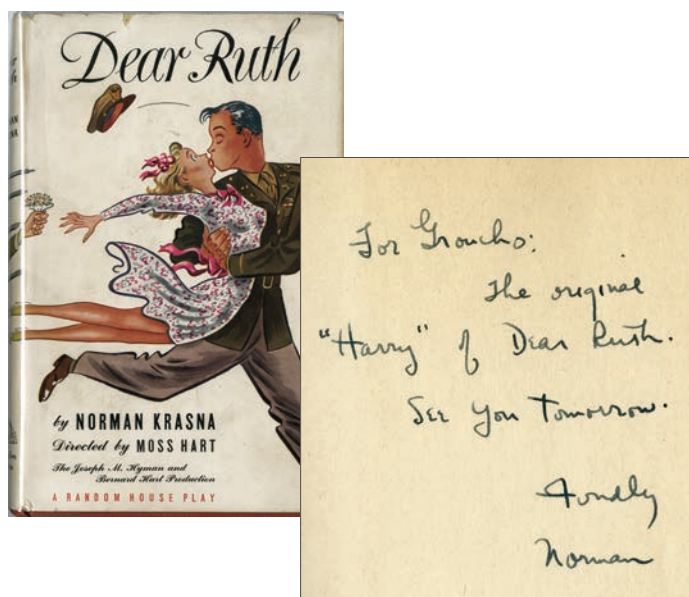 Dear Ruth
by NORMAN KRASNA
Directed by MOSS HART
The Joseph M. Hyman and
Bernard Hart Production
A RANDOM HOUSE PLAY
For Groucho:
The original
"Harry" of Dear Ruth.
See you Tomorrow.
Fondly
Norman